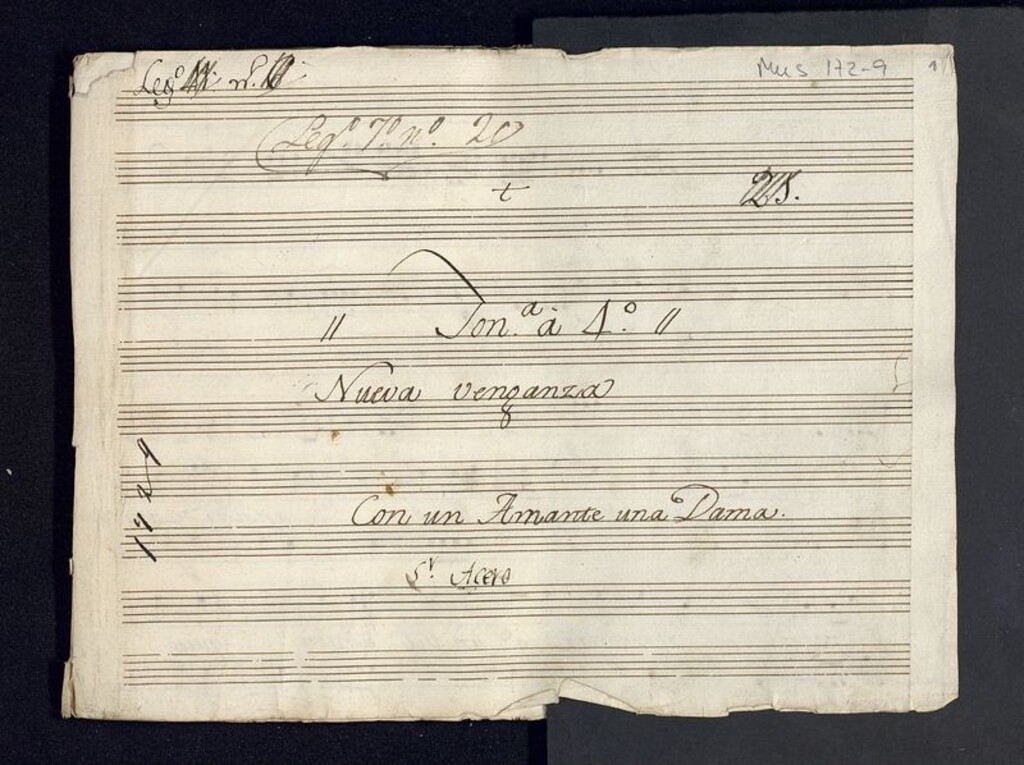 Leg.º n.º
Mus 172-9
1
Leg.º 7.º n.º 20
+
" Ton.ª à 4.º "
Nueva venganza
1724
Con un Amante una Dama.
S.r Acero